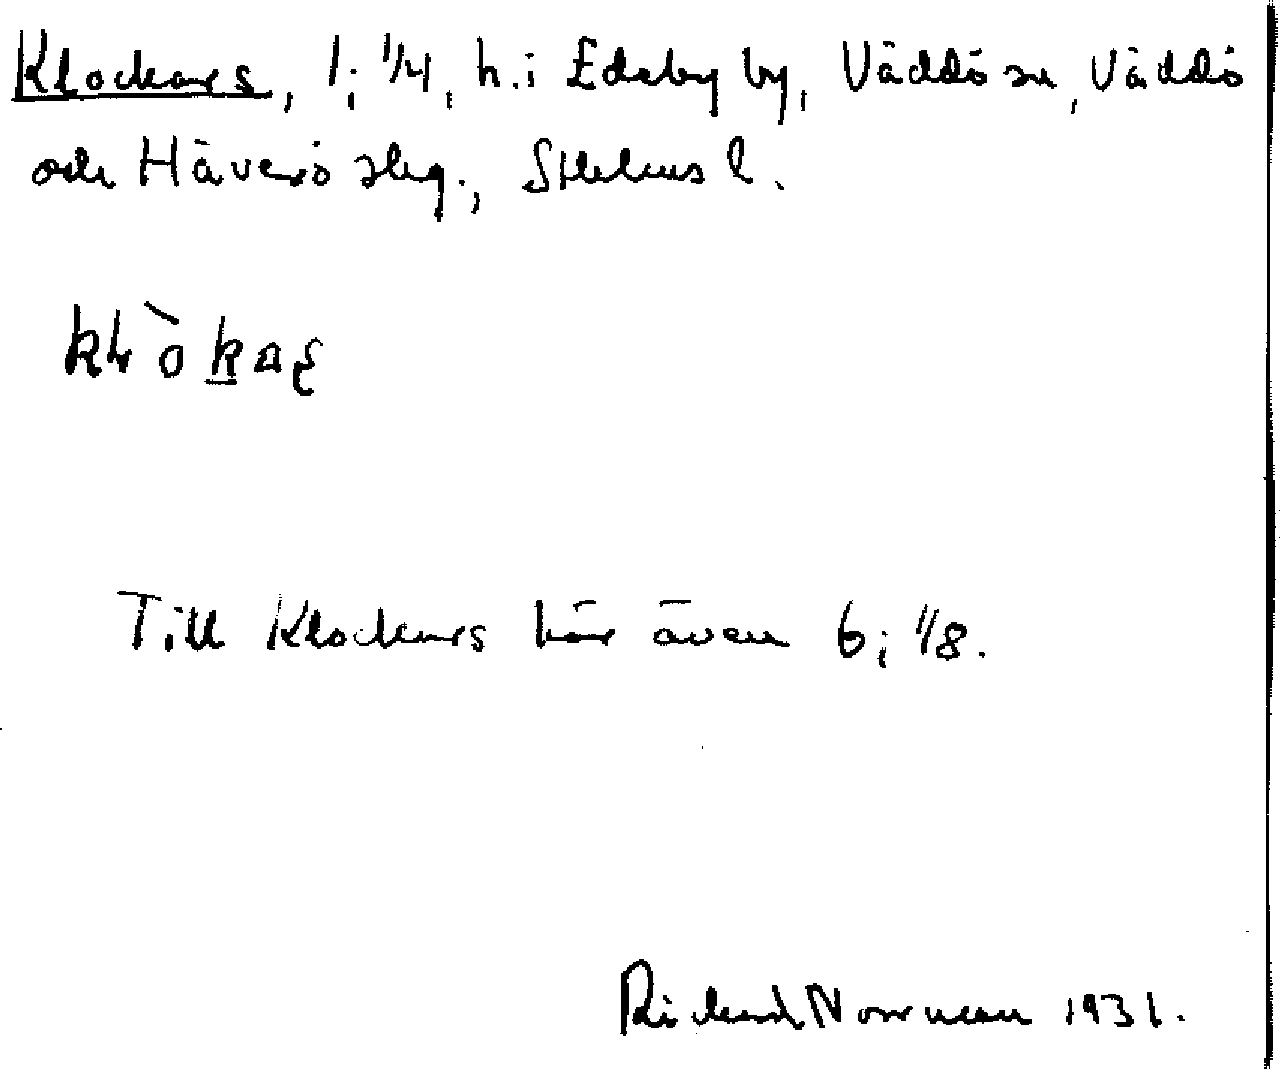 Klockars, 1; 1/4, h. i Edeby by, Väddö sn, Väddö
och Häverö skg., Sthlms l.
klòkaʂ
Till Klockars hör även 6; 1/8.
Rickard Norrman 1931.